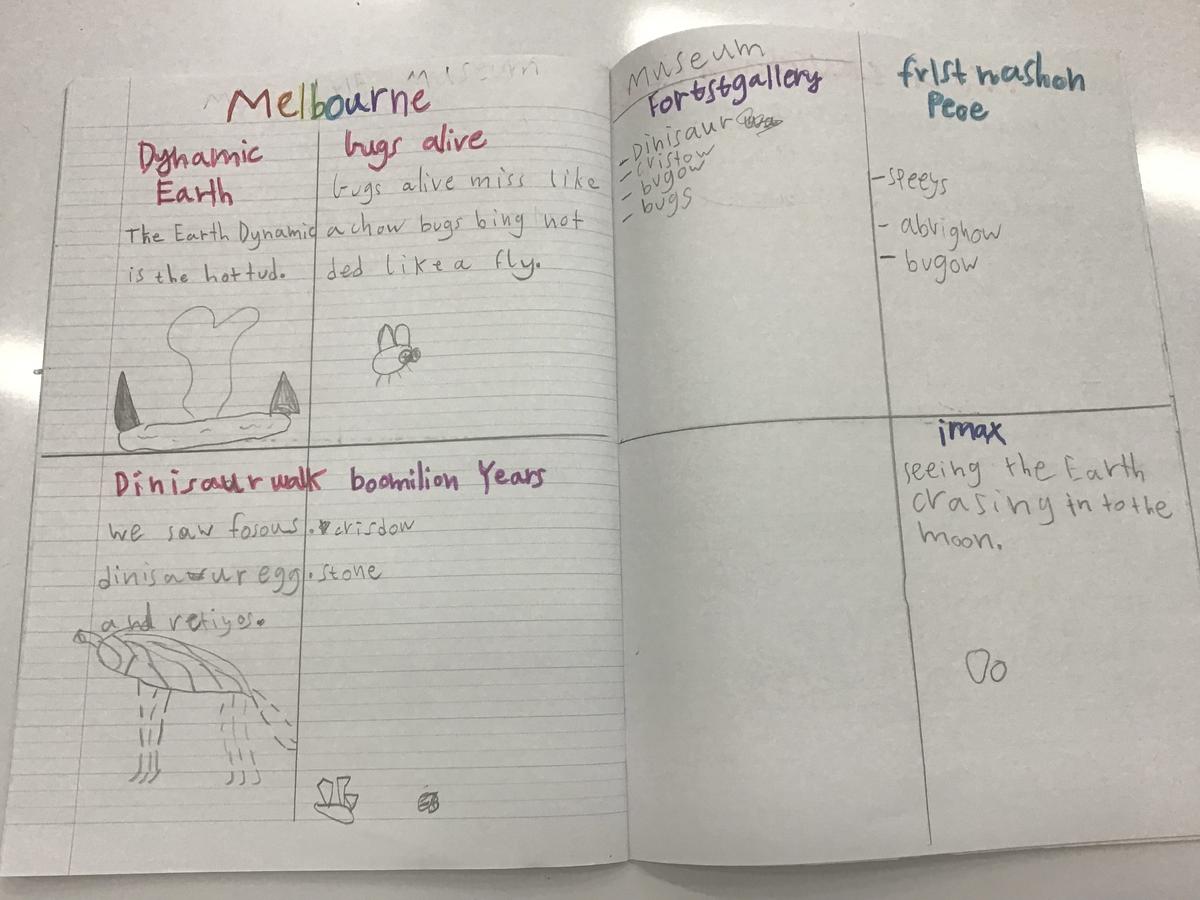 Melbourne
Dynamic
Earth
The Earth Dynamic
is the hottud.
bugs alive
bugs alive miss like
a chow bugs bing not
ded like a fly.
Dinisaur walk
we saw fosous.
dinisaur egg.
and retiyos.
boomilion Years
crisdow
stone
Museum
Fortstgallery
- Dinisaur
- cristow
- bugow
- bugs
frist nashon
Peoe
- speeys
- abrighow
- bugow
imax
seeing the Earth
crasing in to the
moon.